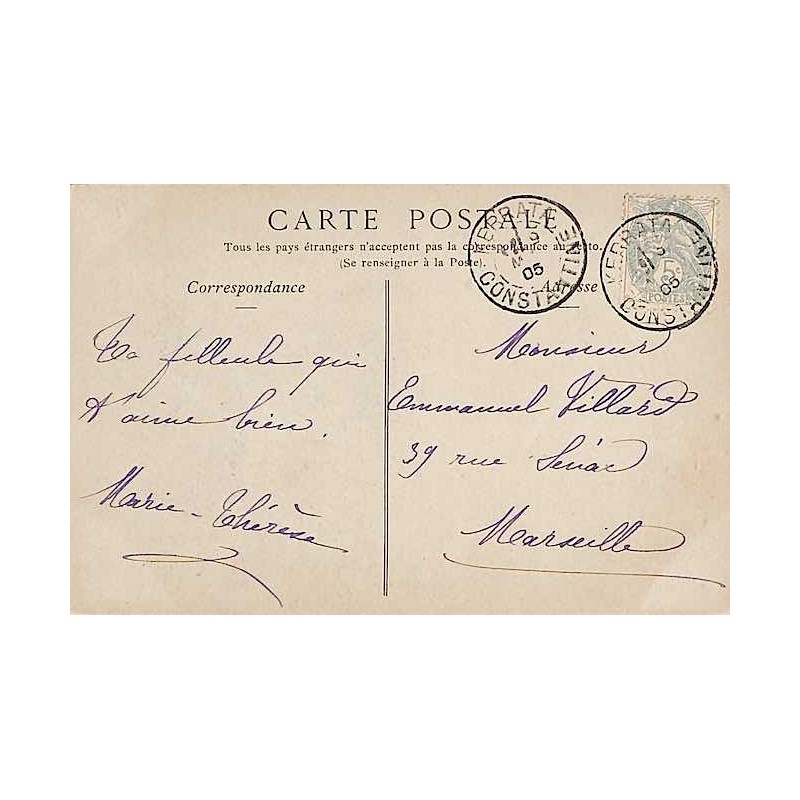 CARTE POSTALE
Tous les pays étrangers n'acceptent pas la correspondance au recto.
(Se renseigner à la Poste).
Correspondance
Adresse
Ta filleule qui
t'aime bien.
Marie-Thérèse
Monsieur
Emmanuel Villard
39 rue Sénac
Marseille
KERRATA
05
CONSTANTINE
KERRATA
05
CONSTANTINE
5c
POSTES